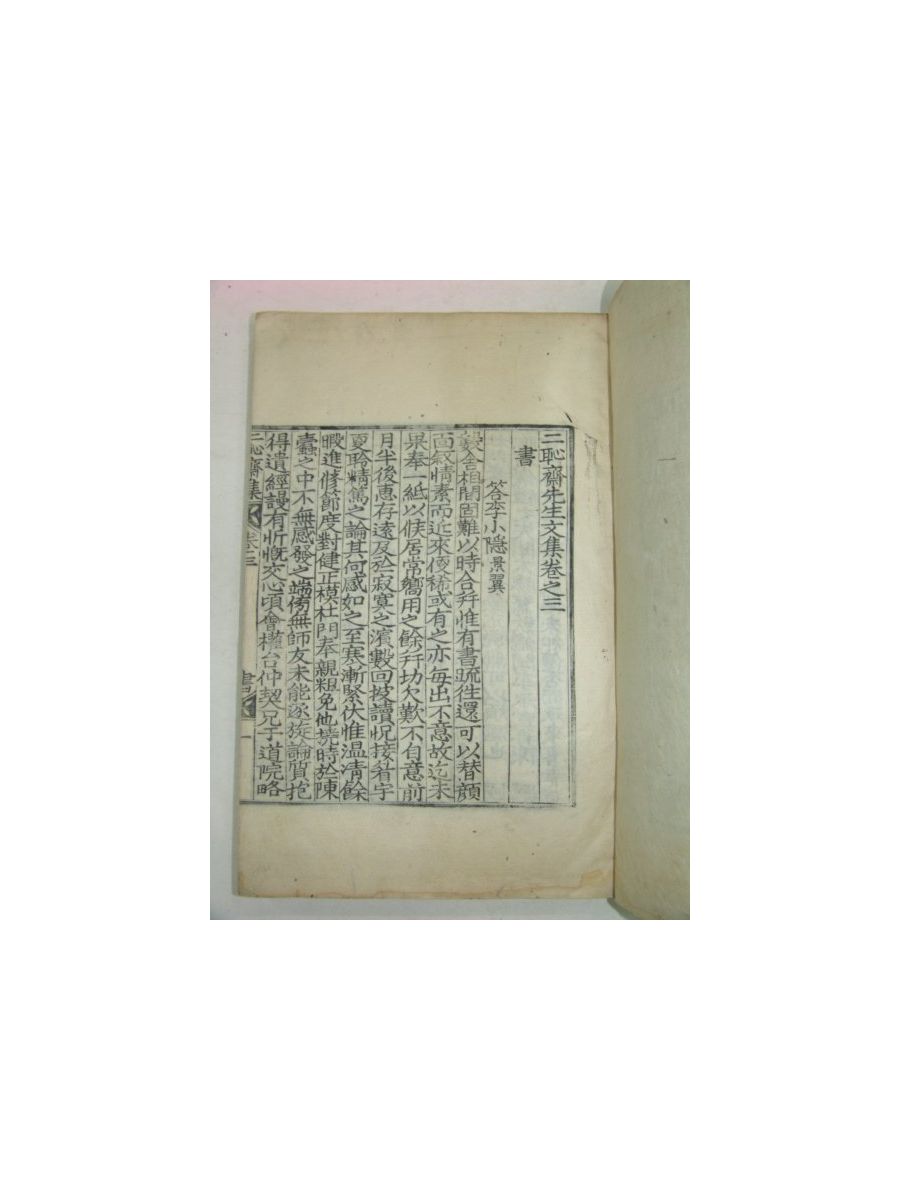 二恥齋先生文集卷之三
書
答李小隱 景翼
舍相閒固難以時合幷惟有書疏徃還可以替顔
面叙情素而近來便稀或有之亦每出不意故迄未
果奉一紙以候居常嚮用之餘幷切欠歎不自意前
月半後惠存遠及於寂寞之濱數回披讀怳接眉宇
夏聆精篤之論其何感如之至寒漸緊伏惟温凊餘
暇進修節度對健正模杜門奉親粗免他撓時於陳
蠹之中不無感發之端傍無師友未能逐旋論質抱
得遺經謾有忻慨交心頃會權台仲契兄于道院略
二恥齋集 卷三 書 一